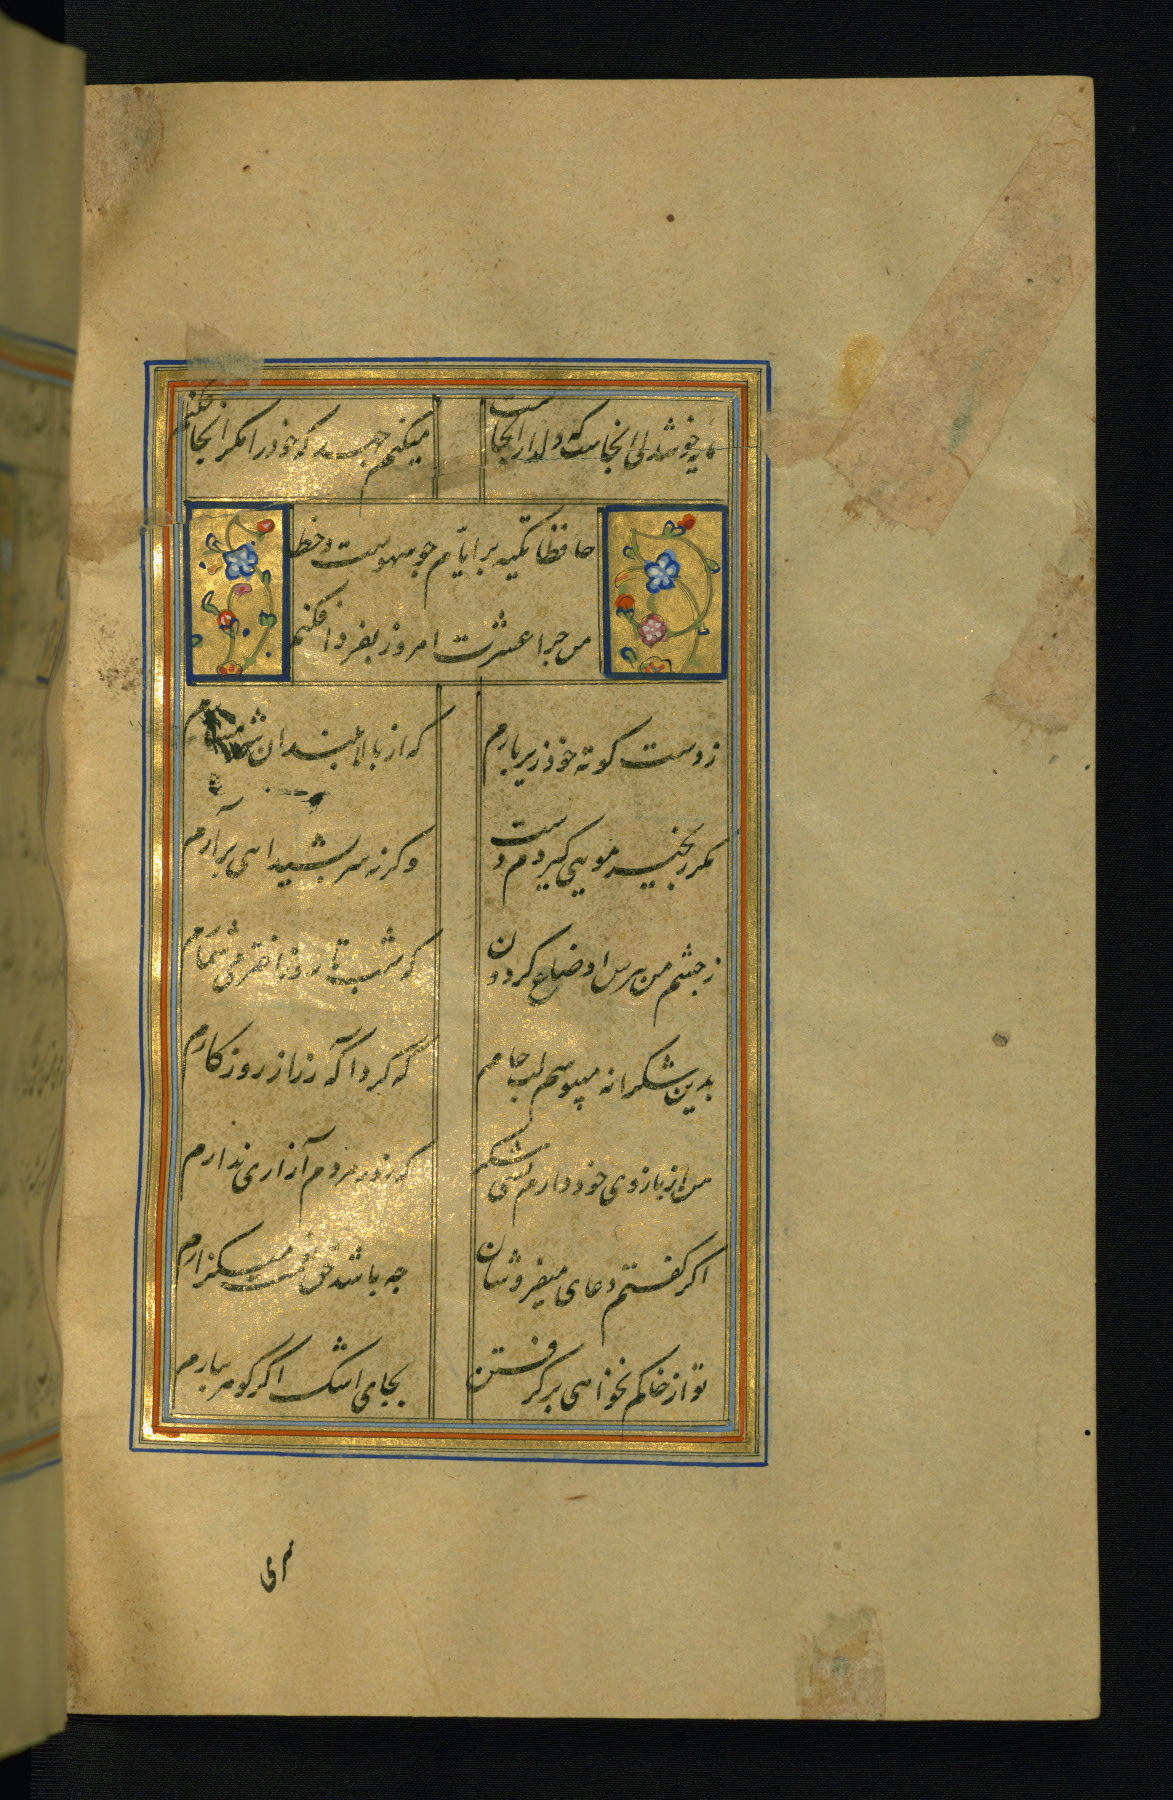 مایه خوشدلی انجاست که دلدار انجاست میکنم جهد که خود را مکر انجا فکنم
حافظا تکیه بر ایام جو سهوست و خطا
من جرا عشرت امروز بفردا فکنم
ز دست کوته خود زیر بارم که از بالابلندان شرمسارم
مکر زنجیر مویی کیردم دست وکرنه سر بشیدایی برآرم
ز جشم من بپرس اوضاع کردون که شب تا روز اختر می شمارم
بدین شکرانه میبوسم لب جام که کرد آکه ز راز روزکارم
من از بازوی خود دارم بسی شکر که زور مردم آزاری ندارم
اکر کفتم دعای میفروشان جه باشد حق نعمت میکزارم
تو از خاکم نخواهی برکرفتن بجای اشک اکر کوهر ببارم